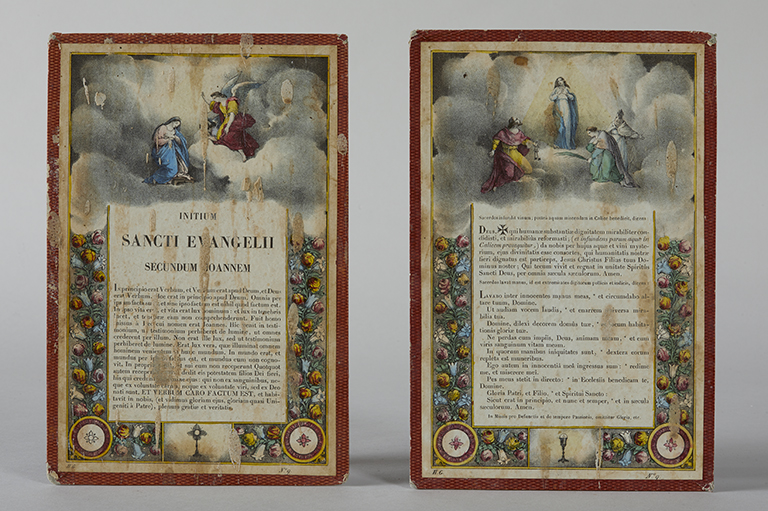 INITIUM
SANCTI EVANGELII
SECUNDUM JOANNEM
principio erat Verbum, et Verbum erat apud Deum, et Deus
erat Verbum. Hoc erat in principio apud Deum. Omnia per
ipsum facta et sine ipso factum est nihil quod factum est.
In ipso vita erat, et vita erat lux hominum: et lux in tenebris
lucet, et tenebræ eam non comprehenderunt. Fuit homo
missus à Deo cui nomen erat Joannes. Hic venit in testi-
monium, ut testimonium perhiberet de lumine, ut omnes
crederent per illum. Non erat ille lux, sed ut testimonium
perhiberet de lumine. Erat lux vera, quæ illuminat omnem
hominem venientem in hunc mundum. In mundo erat, et
mundus per ipsum factus est, et mundus eum non cogno-
vit. In propria venit, et sui eum non receperunt Quotquot
autem receperunt eum, dedit eis potestatem filios Dei fieri,
his qui credunt in nomine ejus: qui non ex sanguinibus, ne-
que ex voluntate carnis, neque ex voluntate viri, sed ex Deo
nati sunt. ET VERBUM CARO FACTUM EST, et habi-
tavit in nobis, et vidimus gloriam ejus, gloriam quasi Uni-
geniti à Patre, plenum gratiæ et veritatis.
N.º 9
Deus, qui humanæ substantiæ dignitatem mirabiliter con-
didisti, et mirabilius reformasti; (et infundens parum aquæ in
Calicem prosequitur,) da nobis per hujus aquæ et vini myste-
rium, ejus divinitatis esse consortes, qui humanitatis nostræ
fieri dignatus est particeps, Jesus Christus Filius tuus Do-
minus noster; Qui tecum vivit et regnat in unitate Spiritûs
Sancti Deus, per omnia sæcula sæculorum. Amen.
Sacerdos lavat manus, id est extremitates digitorum pollicis et indicis, dicens
Lavabo inter innocentes manus meas, * et circumdabo al-
tare tuum, Domine.
Ut audiam vocem laudis, * et enarrem universa mira-
bilia tua.
Domine, dilexi decorem domûs tuæ, * et locum habita-
tionis gloriæ tuæ.
Ne perdas cum impiis, Deus, animam meam, * et cum
viris sanguinum vitam meam.
In quorum manibus iniquitates sunt, * dextera eorum
repleta est muneribus.
Ego autem in innocentiâ meâ ingressus sum: * redime
me, et miserere mei.
Pes meus stetit in directo: * in Ecclesiis benedicam te,
Domine.
Gloria Patri, et Filio, * et Spiritui Sancto:
Sicut erat in principio, et nunc et semper, * et in sæcula
sæculorum. Amen.
In Missis pro Defunctis et de tempore Passionis, omittitur Gloria, etc.
N.º 9